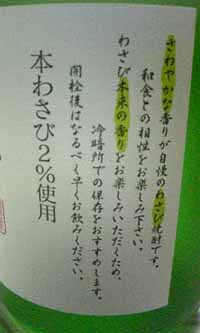 さわやかな香りが自慢のわさび焼酎です。
和食との相性をお楽しみ下さい。
わさび本来の香りをお楽しみいただくため、
冷暗所での保存をおすすめします。
開栓後はなるべく早くお飲みください。
本わさび2%使用